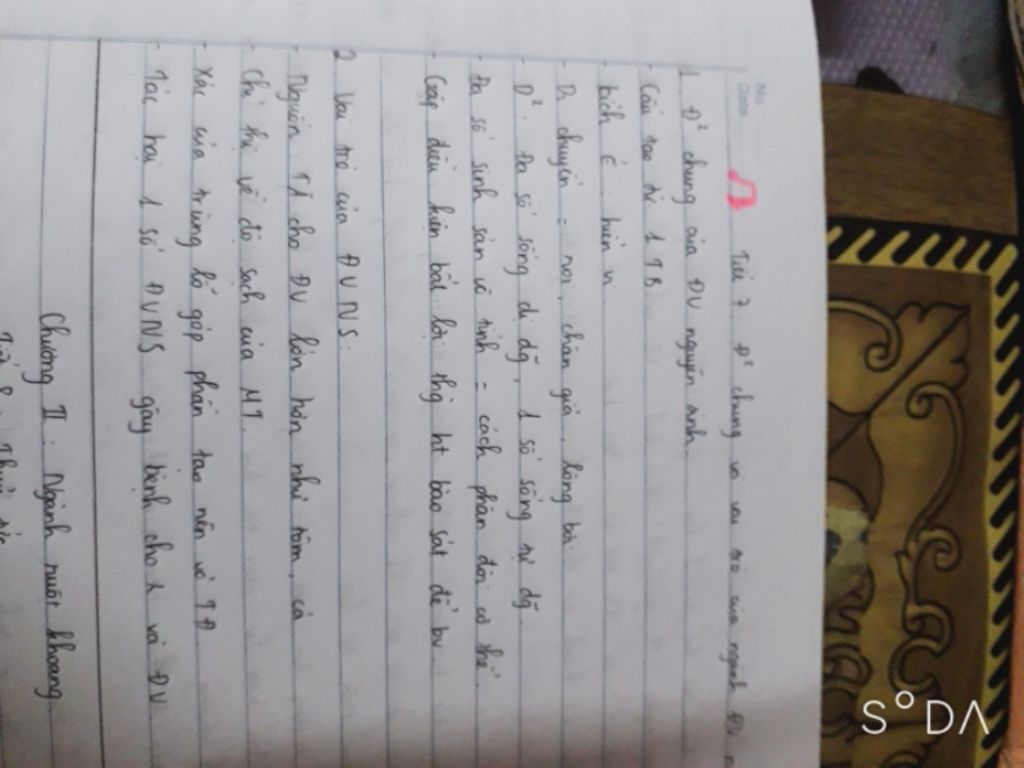 No.
Date
Tiết 7: Đ² chung và vai trò của ngành ĐV
1 Đ² chung của ĐV nguyên sinh.
- Cấu tạo từ 1 TB
- kích t²: hiển vi
- Di chuyển = roi, chân giả, lông bơi.
- D²: Đa số sống dị dg̃, 1 số sống tự dg̃
- Đa số sinh sản vô tính = cách phân đôi cơ thể.
- Gặp điều kiện bất lợi thg ht bào sát để bv
2 Vai trò của ĐVNS:
- Nguồn TĂ cho ĐV lớn hơn như tôm, cá
- Chỉ thị về độ sạch của MT.
- Xác của trùng lỗ góp phần tạo nên vỏ TĐ
- Tác hại 1 số ĐVNS gây bệnh cho và ĐV
Chương II: Ngành ruột khoang
SODA